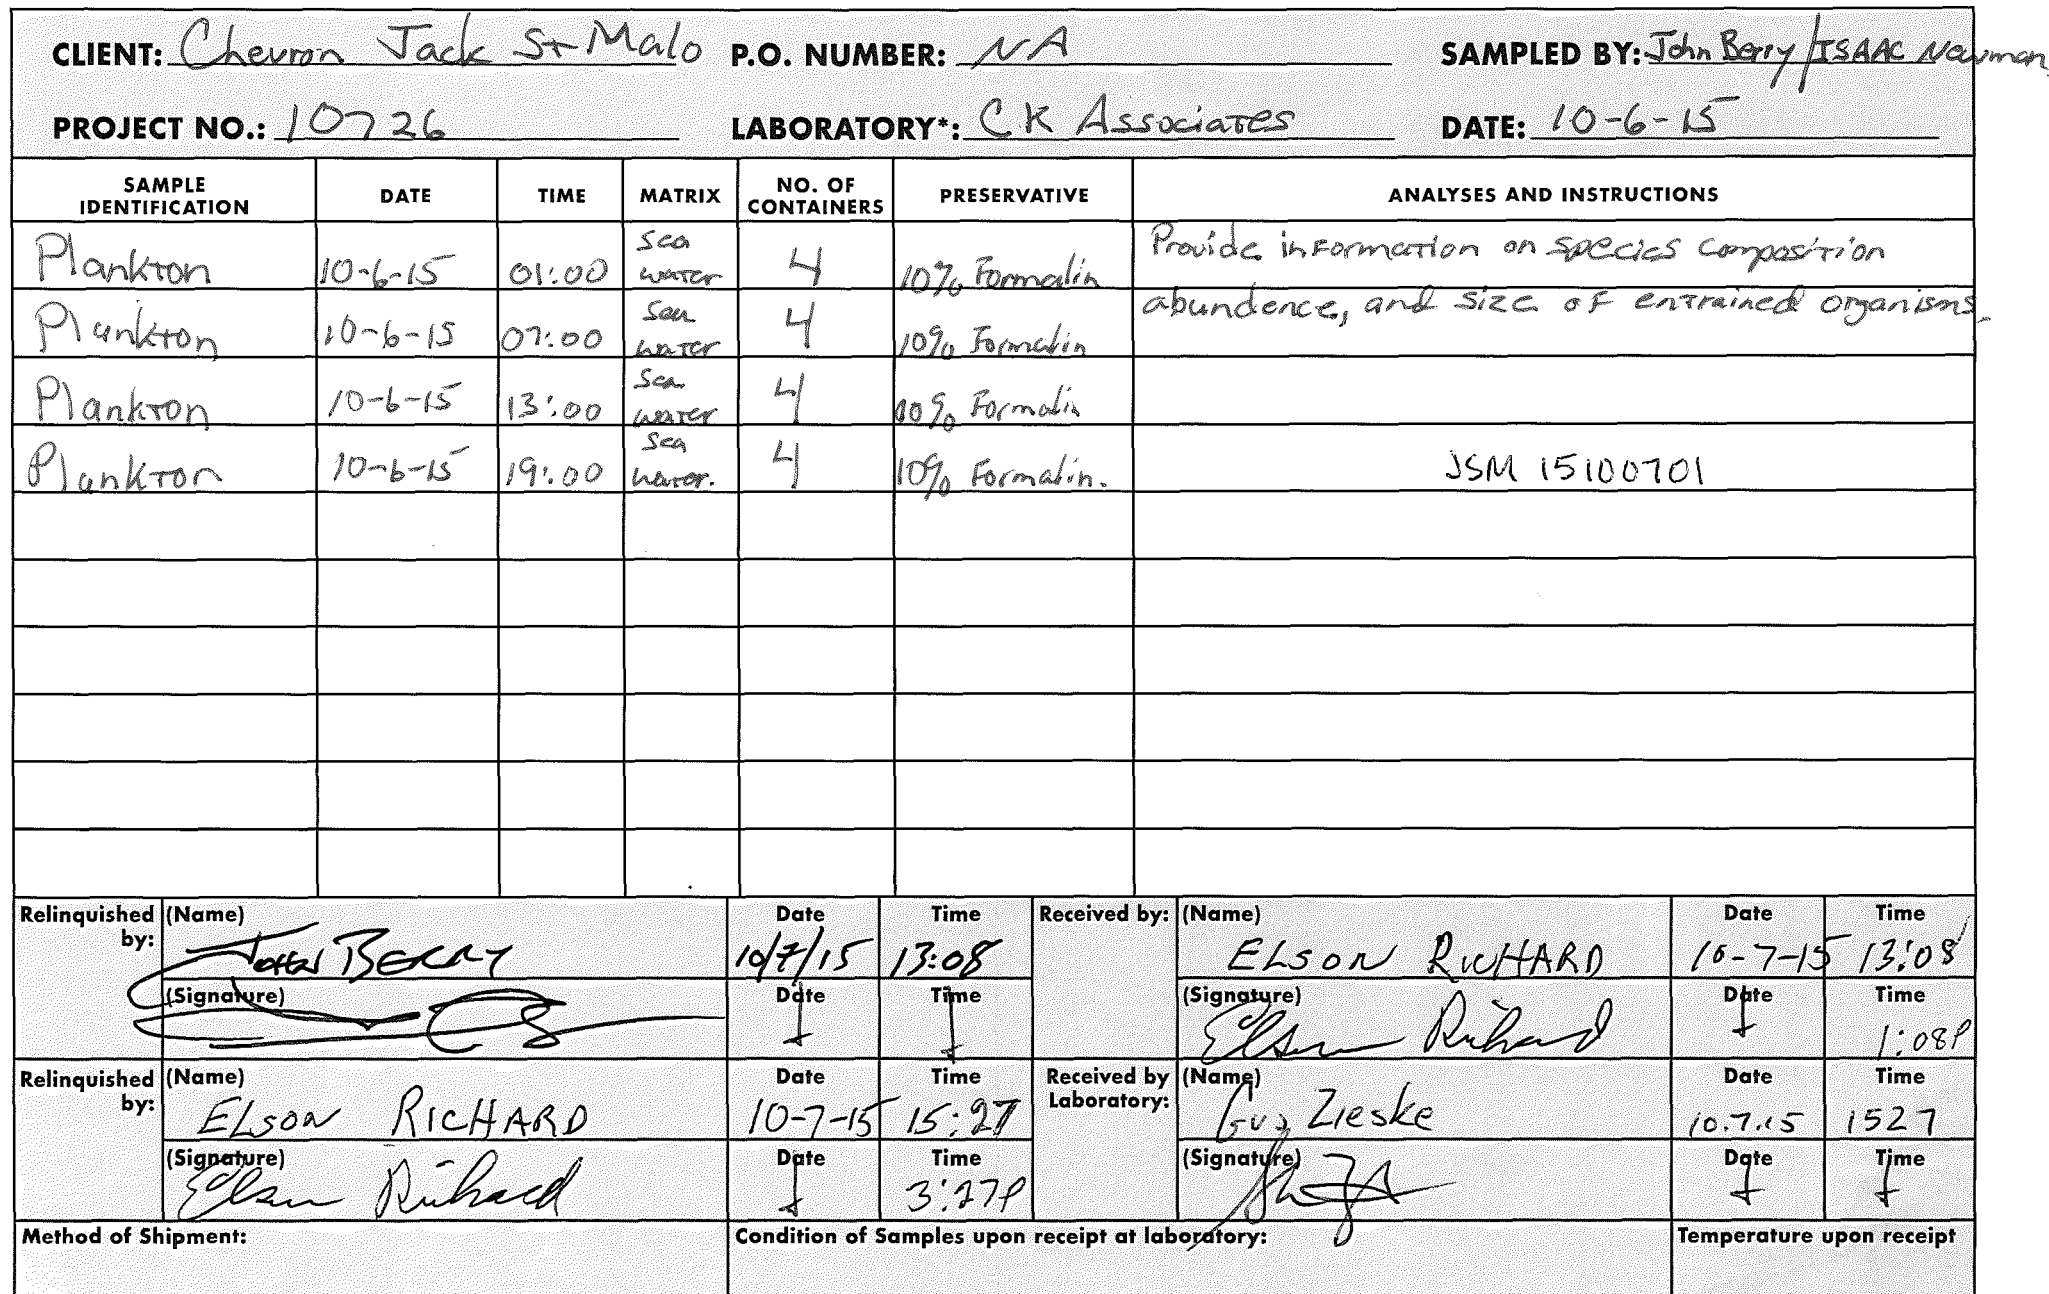 CLIENT: Chevron Jack St Malo P.O. NUMBER: NA SAMPLED BY: John Berry/ISAAC Newman
PROJECT NO.: 10726 LABORATORY*: CK Associates DATE: 10-6-15
SAMPLE IDENTIFICATION DATE TIME MATRIX NO. OF CONTAINERS PRESERVATIVE ANALYSES AND INSTRUCTIONS
Plankton 10-6-15 01:00 Sea water 4 10% Formalin Provide information on species composition
Plankton 10-6-15 07:00 Sea water 4 10% Formalin abundence, and size of entrained organisms.
Plankton 10-6-15 13:00 Sea water 4 10% Formalin
Plankton 10-6-15 19:00 Sea water. 4 10% Formalin. JSM 15100701
Relinquished by: (Name) Date Time Received by: (Name) Date Time
John BERRY 10/7/15 13:08 ELSON RICHARD 10-7-15 13:08
(Signature) Date Time (Signature) Date Time
Elson Richard 1:08P
Relinquished by: (Name) Date Time Received by Laboratory: (Name) Date Time
ELSON RICHARD 10-7-15 15:27 Gus Zieske 10.7.15 1527
(Signature) Date Time (Signature) Date Time
Elson Richard 3:27P
Method of Shipment: Condition of Samples upon receipt at laboratory: Temperature upon receipt